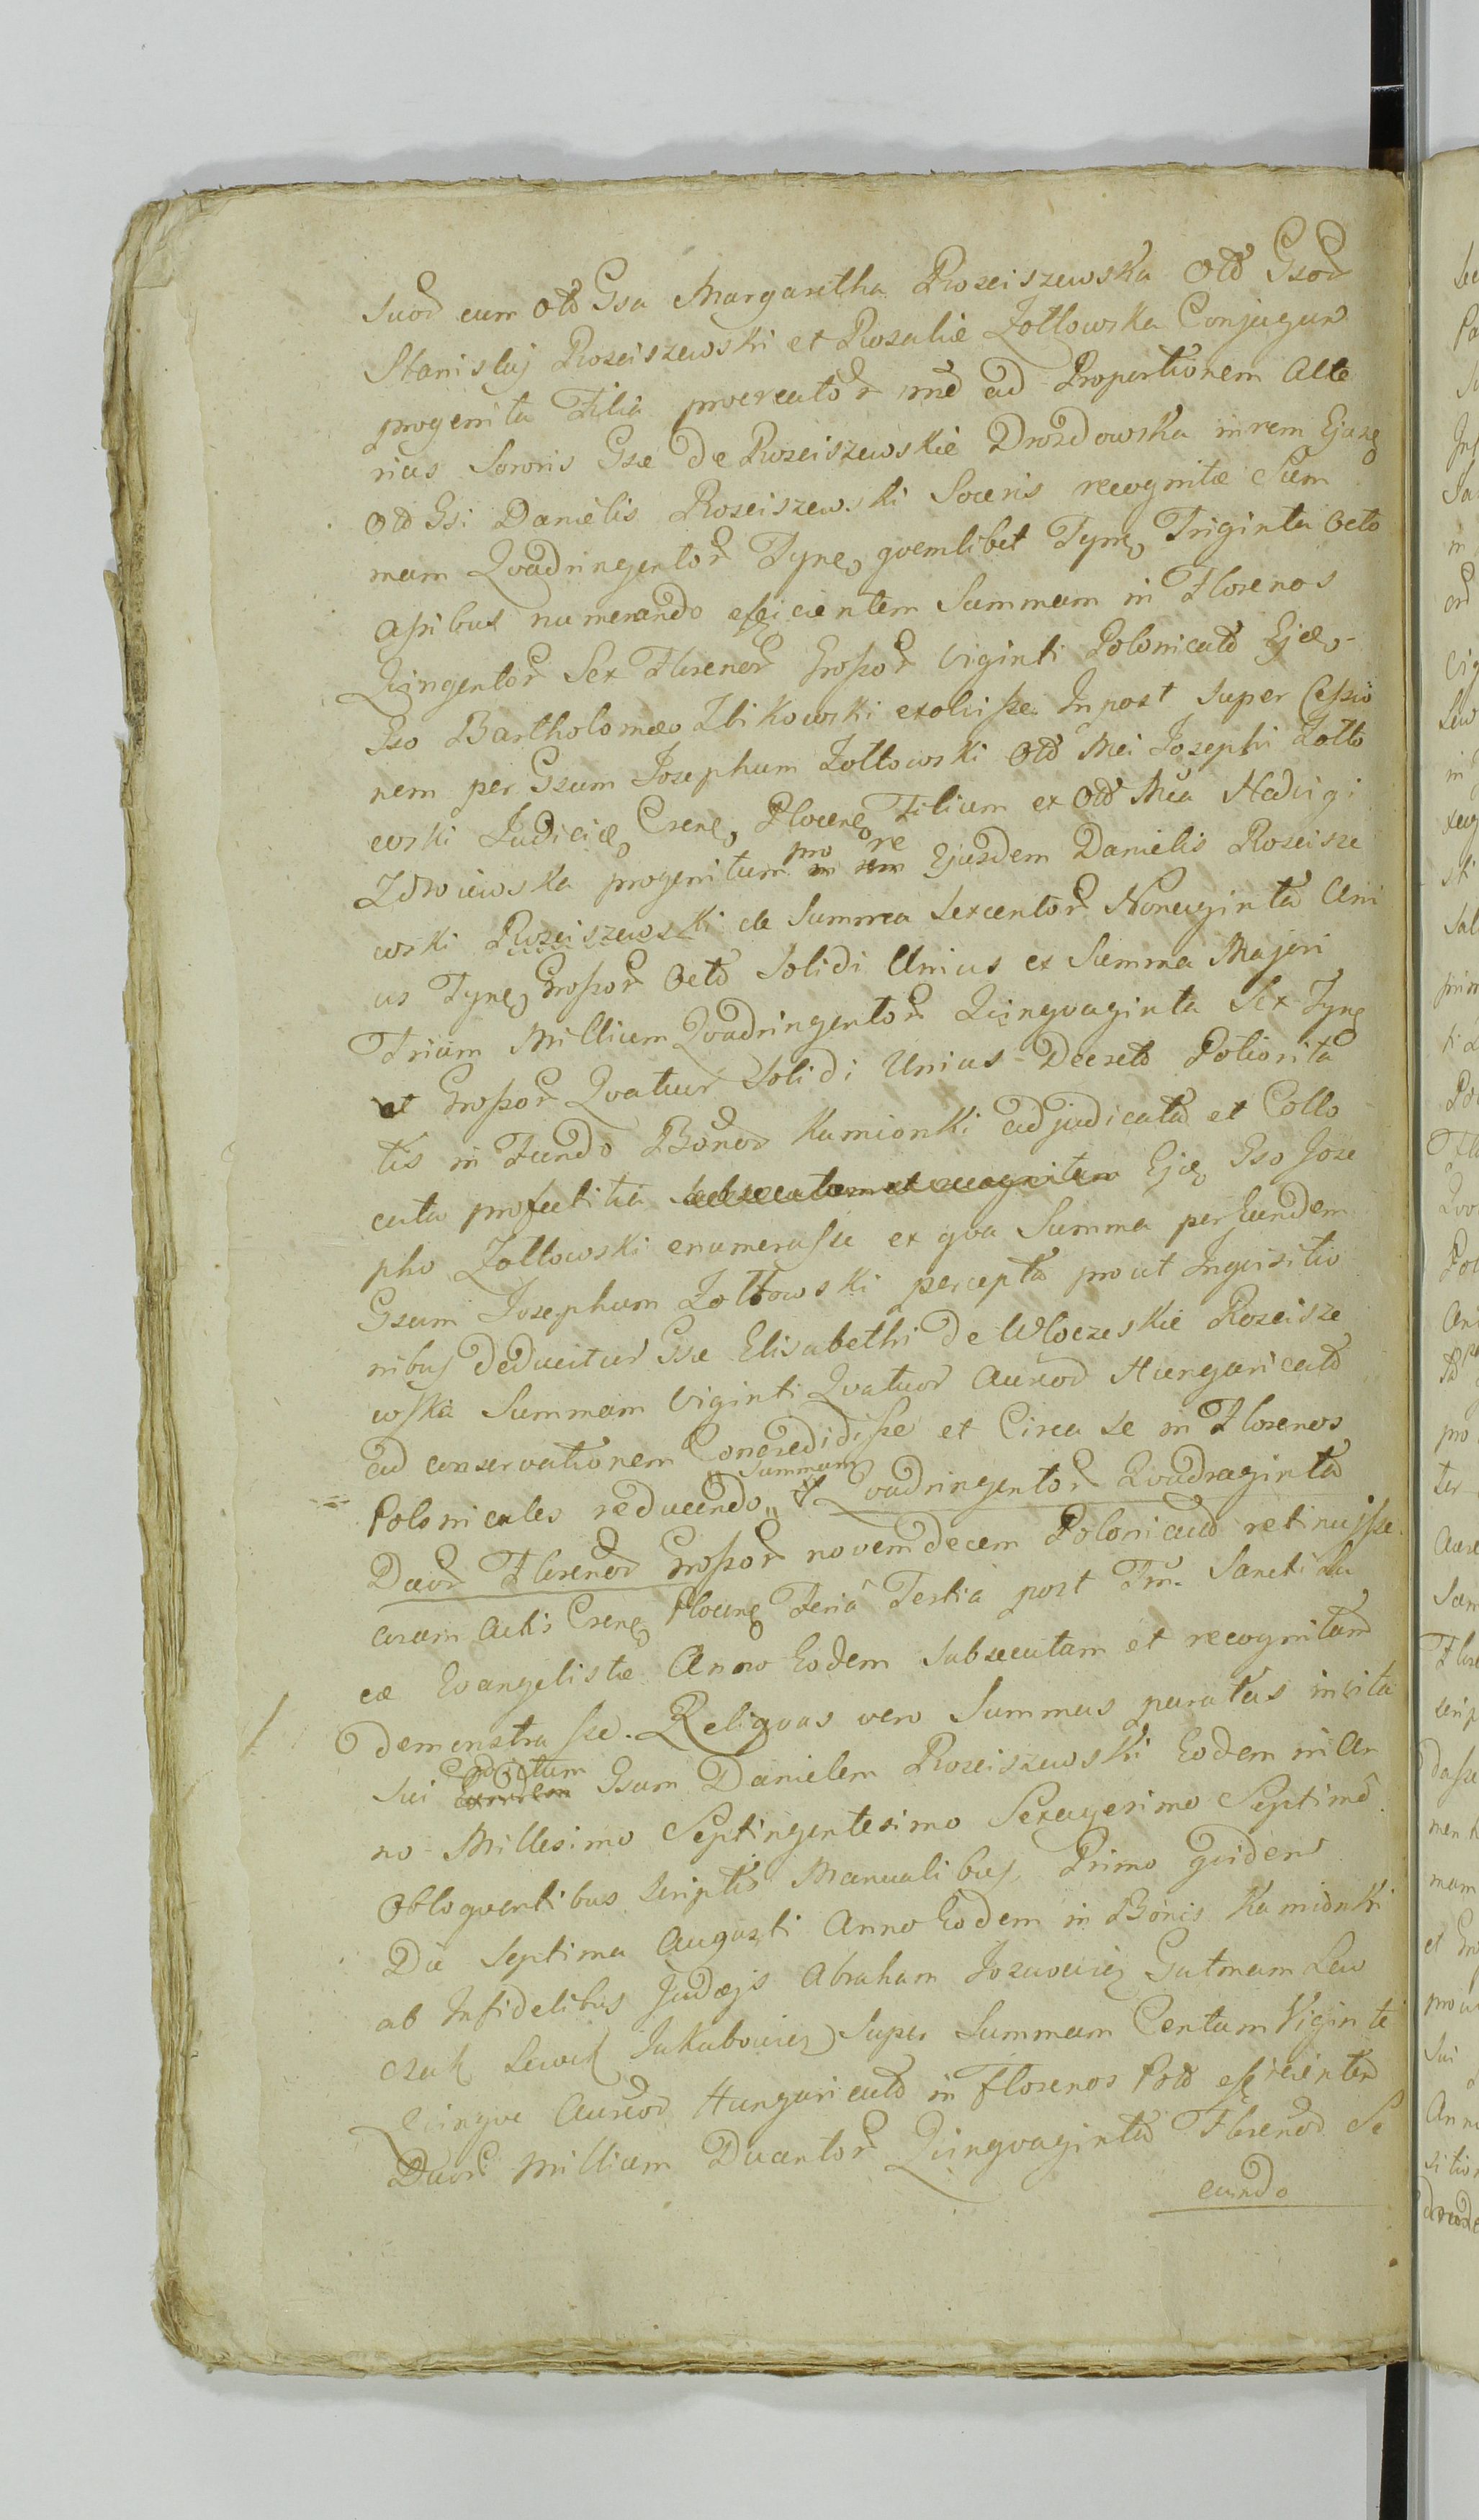 Suor cum Old Gsa Margaretha Rosciszewska Old Gsor
Stanislaj Rosciszewski et Rosaliæ Zołtowska Conjugum
progenita Filia procreator me ad Proportionem Alte
rius Sororis Gsæ de Rosciszewskie Drozdowska in rem Ejusd
Old Gsi Danielis Rosciszewski Soceris recognitæ Sum
mam Qvadringentor Tynf, qvemlibet Tynf, Triginta Octo
assibus numerando efficientem Summam in Florenos
Qvingentor Sex Florenor Grossor Viginti Polonicald Ejd,
Gso Bartholomæo Zbikowski exolvisse. Inpost Super Cessio
nem per Gsum Josephum Zołtowski Old Mci Josephi Zołto
wski Judicis, Crens, Plocens, Filium ex Old Mca Hedvigi
Zdrviewska progenitum pro re ejusdem Danielis Roscisze
wski Rosciszewski de Summa Sexcentor Nonaginta Uni
us Tynf, Grossor Octo Solidi Unius ex Summa Majori
Trium Millium Qvadringentor Qvinqvaginta Sex Tynf
et Grossor Qvatuor Solidi Unius Decreto Potiorita
tis in Fundo Bonor Kamionki adjudicata et Collo
cata profectitia subsecutam et recognitam Ejd, Gso Jose
pho Zołtowski enumerasse ex qva Summa per Eundem
Gsum Josephum Zołtowski percepta prout Inqvisitio
nibus deducitur Gsæ Elisabethi de Włoczeskie Roscisze
wska Summam Viginti Qvatuor Aureor Hungaricald
ad conservationem Concredidisse et Circa se in Florenos
Polonicales reducendo Summam Qvadringentor Qvadraginta
Duor Florenor Grossor novemdecem Polonicald retinuisse
coram Actis Crens Plocens Feria Tertia post Fm. Sancti Lu
cæ Evangelistæ Anno Eodem Subsecutam et recognitam
demonstrasse. Reliqvas vero Summas paratas in vita
Sui Prædictum Eundem Gsum Danielem Rosciszewski Eodem in An
no Millesimo Septingentesimo Sexagesimo Septimo
obloqventibus scriptis Manualibus Primo qvidem
Die Septima Augusti Anno Eodem in Bonis Kamionki
ab Infidelibus Judæjs Abraham Jozwowicz Gutmam Lew
czak Lewek Jakubowicz Super Summam Centum Viginti
Qvinqve Aureor Hungaricald in Florenos Pold efficientem
Duor Millium Ducentor Qvinqvaginta Florenor Se
cundo